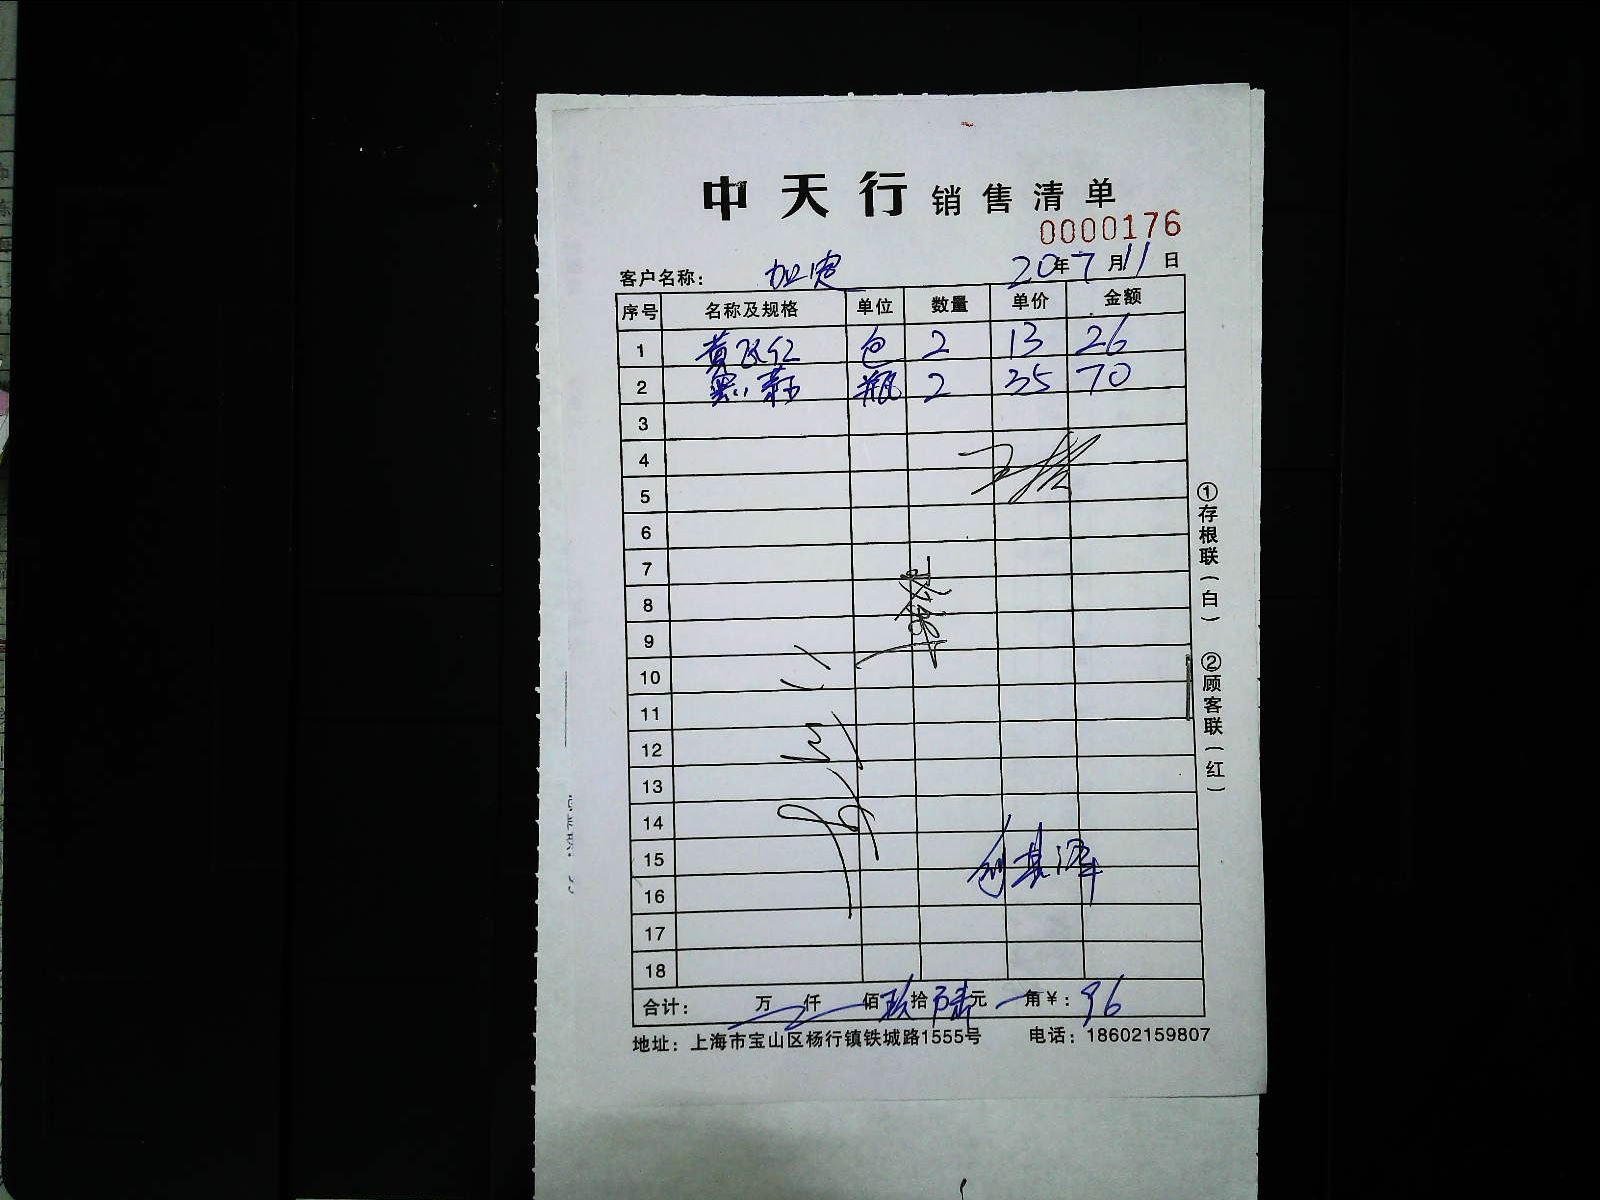 中天行 销售清单
0000176
客户名称： 20年7月11日
序号 名称及规格 单位 数量 单价 金额
1 黄飞红 包 2 13 26
2 瓶 2 35 70
3
4
5
6
7
8
9
10
11
12
13
14
15
16
17
18
合计： 万 仟 佰 玖拾 陆元 角 ¥： 96
地址：上海市宝山区杨行镇铁城路1555号 电话：18602159807
①存根联（白） ②顾客联（红）